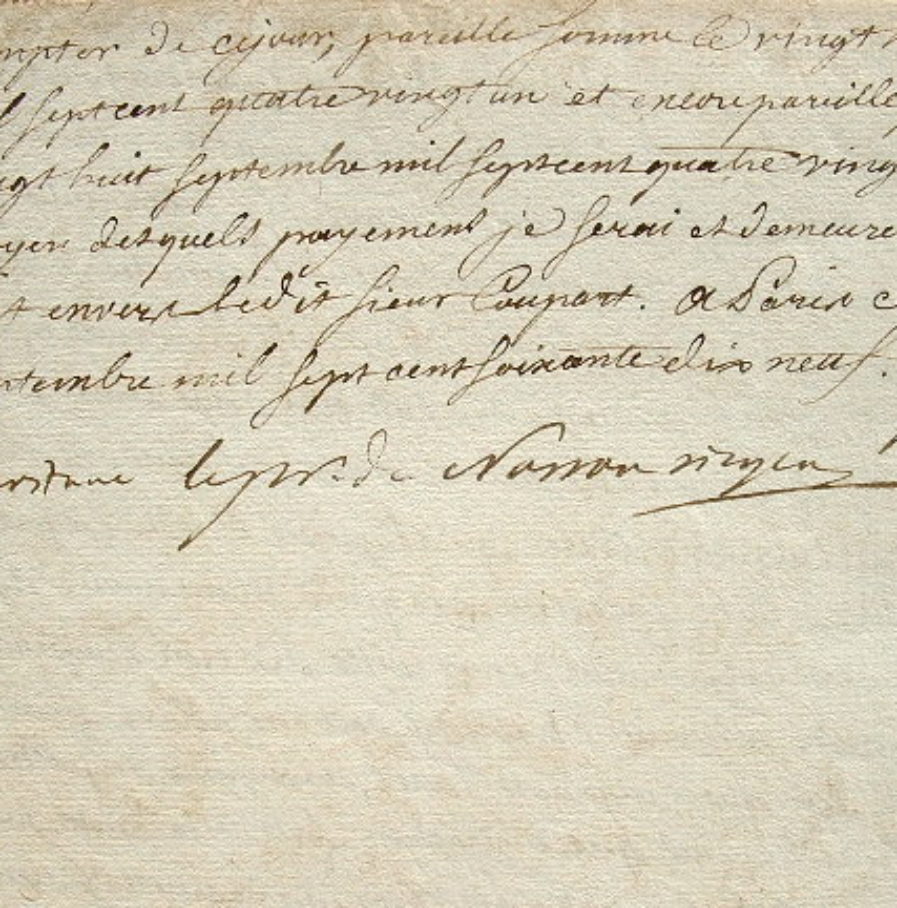 mpter de cejour, pareille somme le vingt
l septcent quatrevingt un et encore pareille
ngt huit septembre mil septcent quatre ving
yen desquels payement je serai et demeure
t envers ledit sieur Coupart. a Paris c
ptembre mil sept cent soixante dix neuf.
de